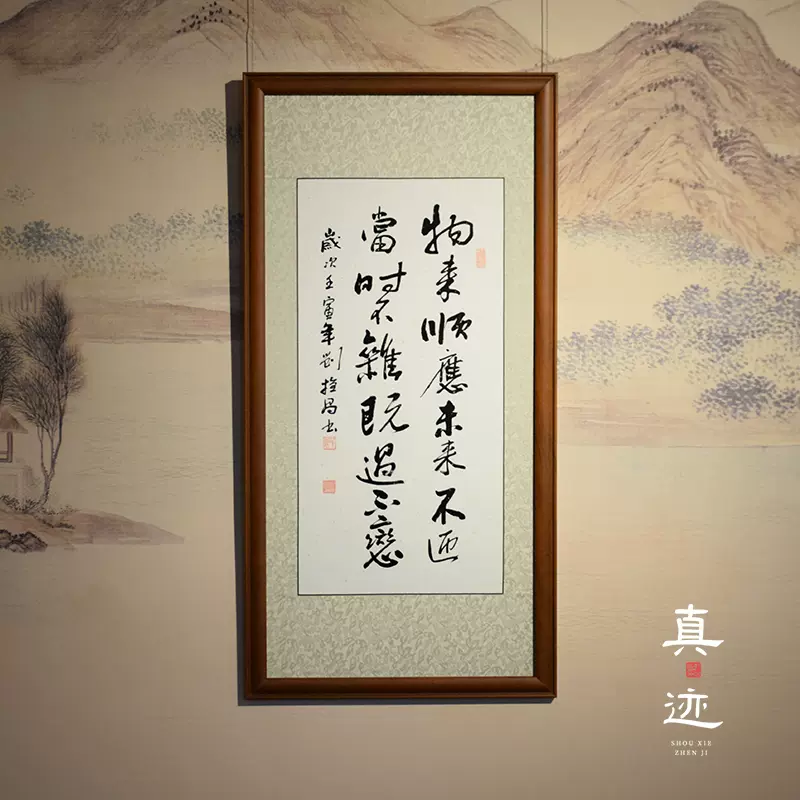 物来順應未来不迎
當时不雜既過不戀
歲次壬寅年劉昌书
真迹
SHOU XIE
ZHEN JI